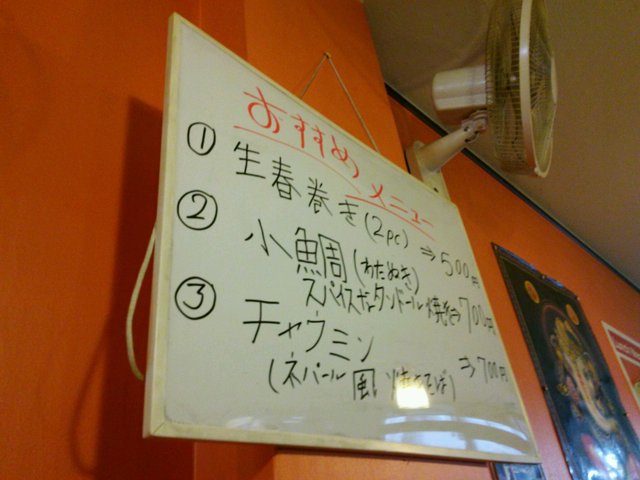 おすすめメニュー
① 生春巻き(2pc) ⇒ 500円
② 小鯛(わたぬき)
スパイスガータンドール焼き⇒700円
③ チャウミン
(ネパール風 焼きそば) ⇒ 700円